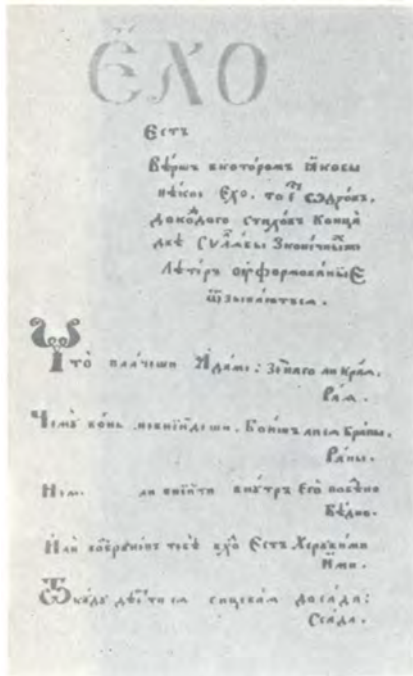 ЕХО
Есть
Вѣршъ вкоторомъ іакобы
нѣкое Ехо. то е сѡдровъ,
до кождого стиховъ конца
двѣ Силлабы Зконечныхъ
Лѣтеръ оуформованые
ѿзываютъсѧ.
Что плачеши Адаме: Земнаго ли краѧ.
Раѧ.
Чему вонь не внійдеши. Боиш ли сѧ браны.
Раны.
ли внійти внутръ его побѣдно
Бѣдно.
Или возбранѧет тебѣ вхо Есть Херувими
Ими.
Ѿкуду дѣетъ сѧ сицеваѧ досада:
Ссада.